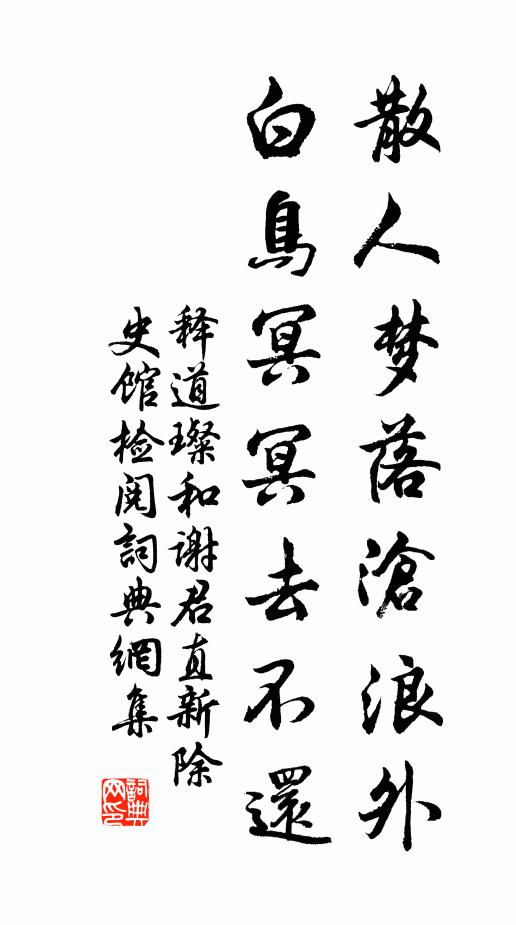 散人梦落滄浪外
白鳥冥冥去不還
释道璨和谢君直新除
史馆检阅詞典網集
詞典网印